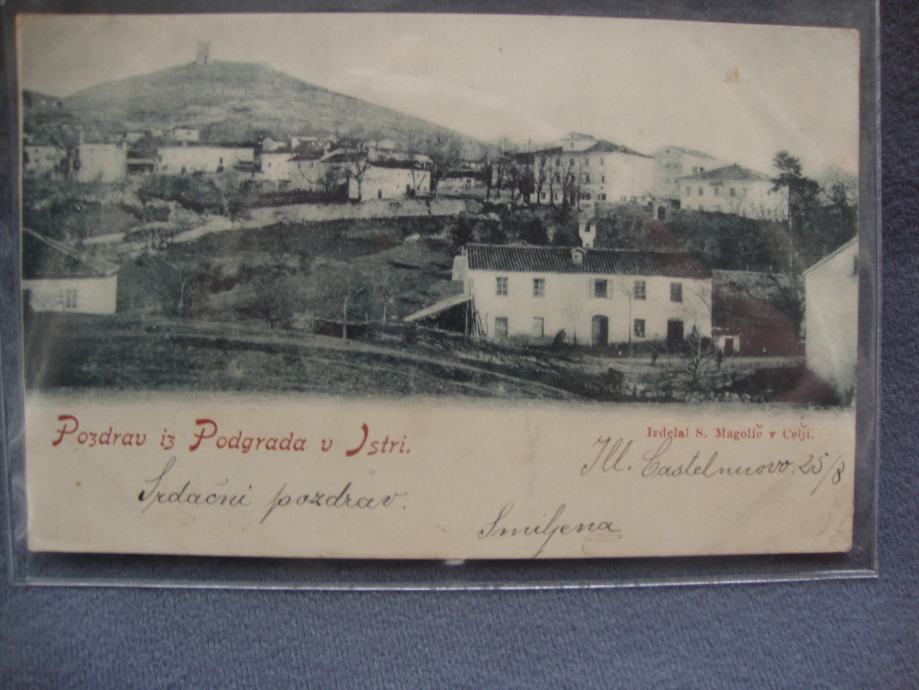 Pozdrav iz Podgrada v Istri.
Izdelal S. Magolič v Celji.
Ill. Castelnuovo. 25/8
Srdačni pozdrav.
Smiljena